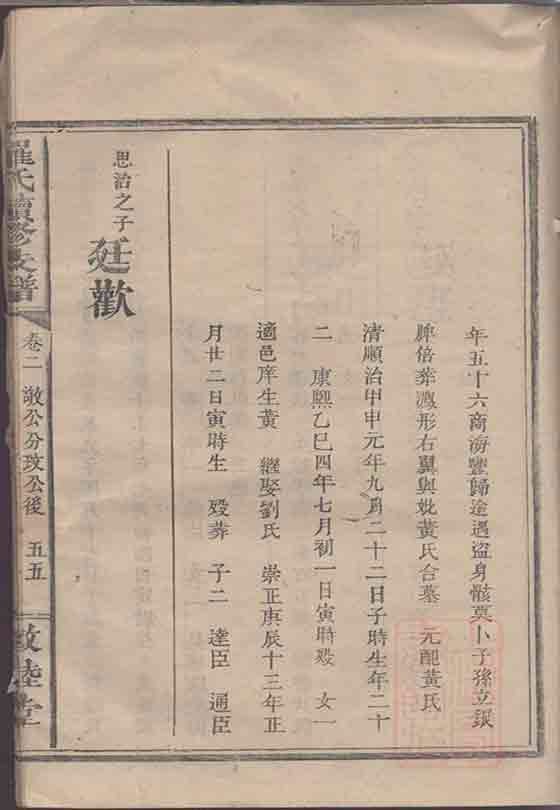 年五十六商海豐歸途遇盜身骸莫卜子孫立銀
牌倍葬鴻形右翼與妣黃氏合墓　元配黃氏
清順治甲申元年九月二十二日子時生年二十
二　康熙乙巳四年七月初一日寅時歿　女一
適邑庠生黃　繼娶劉氏　崇正庚辰十三年正
月廿二日寅時生　歿葬　子二　達臣　通臣
思治之子　廷歡
羅氏續修支譜
卷二　敬公分玟公後　五五
敦睦堂